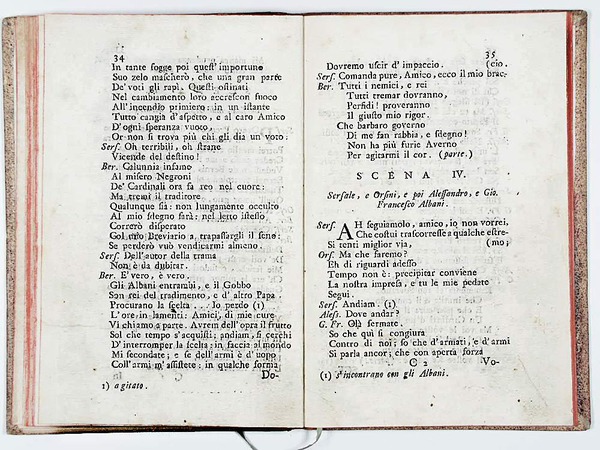 34
In tante fogge poi quest' importuno
Suo zelo mascherò, che una gran parte
De' voti gli rapì. Questi ostinati
Nel cambiamento loro accrescon fuoco
All' incendio primiero: in un istante
Tutto cangia d'aspetto, e al caro Amico
D'ogni speranza vuoto,
Or non si trova più chi gli dia un voto:
Sers. Oh terribili, oh strane
Vicende del destino!
Ber. Calunnia insano
Al misero Negroni
De' Cardinali ora fa reo nel cuore:
Ma tremi il traditore
Qualunque sia: non lungamente occulto
Al mio sdegno sarà: nel letto istesso
Correrò disperato
Col suo Breviario a trapassargli il seno:
Se perderò vuò vendicarmi almeno.
Sers. Dell'autor della trama
Non è da dubitar.
Ber. E' vero, è vero.
Gli Albani entrambi, e il Gobbo
San rei del tradimento, e d' altro Papa
Procurano la scelta . . . Io perdo (1)
L'ore in lamenti: Amici, di mie cure
Vi chiamo a parte. Avrem dell'opra il frutto
Sol che tempo s'acquisti; andiam, si cerchi
D' interromper la scelta: in faccia al mondo
Mi secondate; e se dell'armi è d'uopo
Coll' armi m' assistete: in qualche forma
Do-
1) agitato.
35
Dovremo uscir d' impaccio. (cio.
Sers. Comanda pure, Amico, ecco il mio brac-
Ber. Tutti i nemici, e rei
Tutti tremar dovranno,
Perfidi! proveranno
Il giusto mio rigor.
Che barbaro governo
Di me fan rabbia, e sdegno!
Non ha più furie Averno
Per agitarmi il cor. (parte.)
SCENA IV.
Sersale, e Orsini, e poi Alessandro, e Gio.
Francesco Albani.
Sers. AH seguiamolo, amico, io non vorrei,
Che costui trascorresse a qualche estre-
Si tenti miglior via, (mo;
Ors. Ma che faremo?
Eh di riguardi adesso
Tempo non è: precipitar conviene
La nostra impresa, e tu le mie pedate
Segui.
Sers. Andiam. (1)
Aless. Dove andar?
G. Fr. Olà fermate.
So che quì si congiura
Contro di noi; so che d'armati, e d'armi
Si parla ancor; che con aperta forza
C 2 Vo-
(1) s'incontrano con gli Albani.